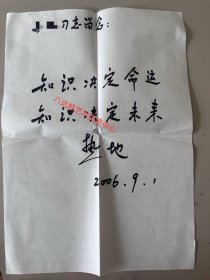 同志留念：
知识决定命运
知识决定未来
热地
2006.9.1